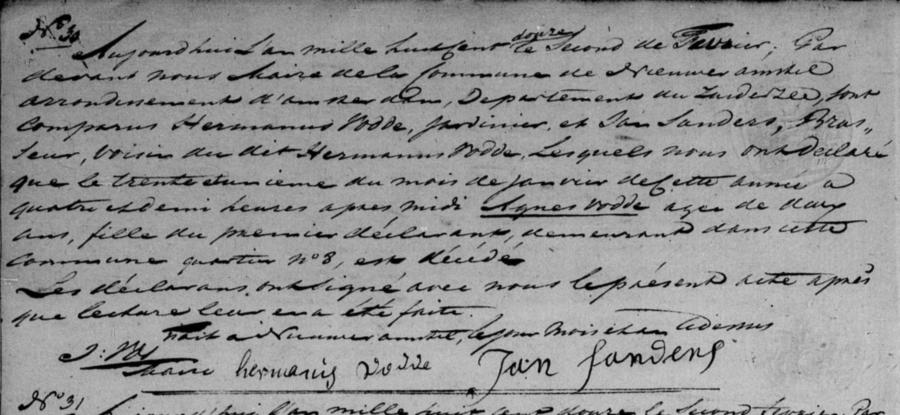 N° 30
Aujourdhui l'an mille huit cent douze le second de Fevrier, Par
devant nous Maire de la Commune de Nieuweramstel
arrondissement d'amsterdam, Departement du Zuiderzee, sont
Comparus Hermanus Vodde, Jardinier, et Jan Sanders, Bras„
seur, voisin du dit Hermanus Vodde, Lesquels nous ont declaré
que le trente et unieme du mois de Janvier de Cette année a
quatre et demi heures apres midi Agnes Vodde agee de deux
ans, fille du premier déclarant, demeurant dans cette
Commune quartier n° 8, est décédé
Les déclarans ont signé avec nous le présent acte après
que lecture leur en a été faite.
Fait a Nieuweramstel, le jour Mois et an
Maire hermanis Vodde Jan Sanders
N° 31 l'an mille huit cent douze le second fevrier Par